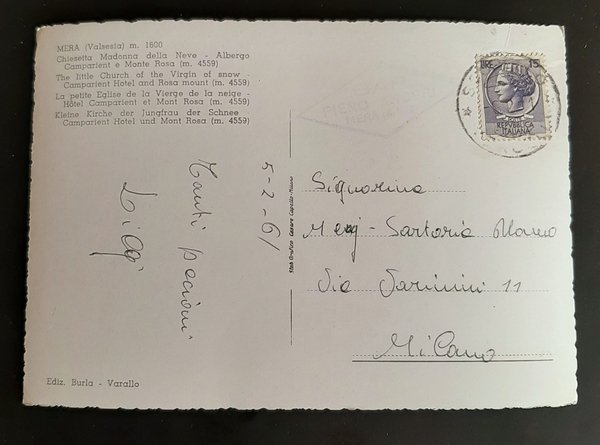 MERA (Valsesia) m. 1600
Chiesetta Madonna della Neve - Albergo
Camparient e Monte Rosa (m. 4559)
The little Church of the Virgin of snow -
Camparient Hotel and Rosa mount (m. 4559)
La petite Eglise de la Vierge de la neige -
Hôtel Camparient et Mont Rosa (m. 4559)
Kleine Kirche der Jungfrau der Schnee
Camparient Hotel und Mont Rosa (m. 4559)
Tanti bacioni
Gigi
5-2-61
Ediz. Burla - Varallo
Stab Grafico Cesare Capello-Milano
LIRE 15
REPVBBLICA
ITALIANA
MERA
Signorina
Sartoria
Via 11
Milano